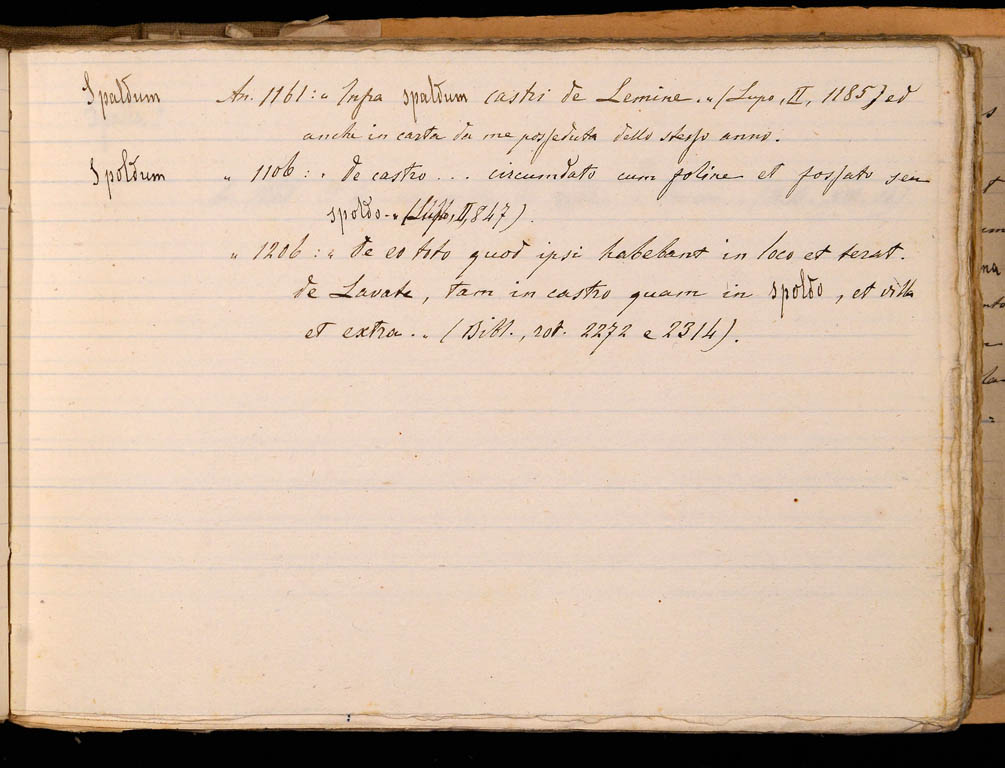 Spaldum An. 1161: „ Infra spaldum castri de Lemine „ (Lupo, II, 1185) ed
anche in carta da me posseduta dello stesso anno.
Spoldum „ 1106: „ de castro ... circumdato cum foline et fossato seu
spoldo „ (Lupo, II, 847).
„ 1206: „ de eo toto quod ipsi habebant in loco et terat.
de Lavate, tam in castro quam in spoldo, et villa
et extra „ (Bibl., rot. 2272 e 2314).